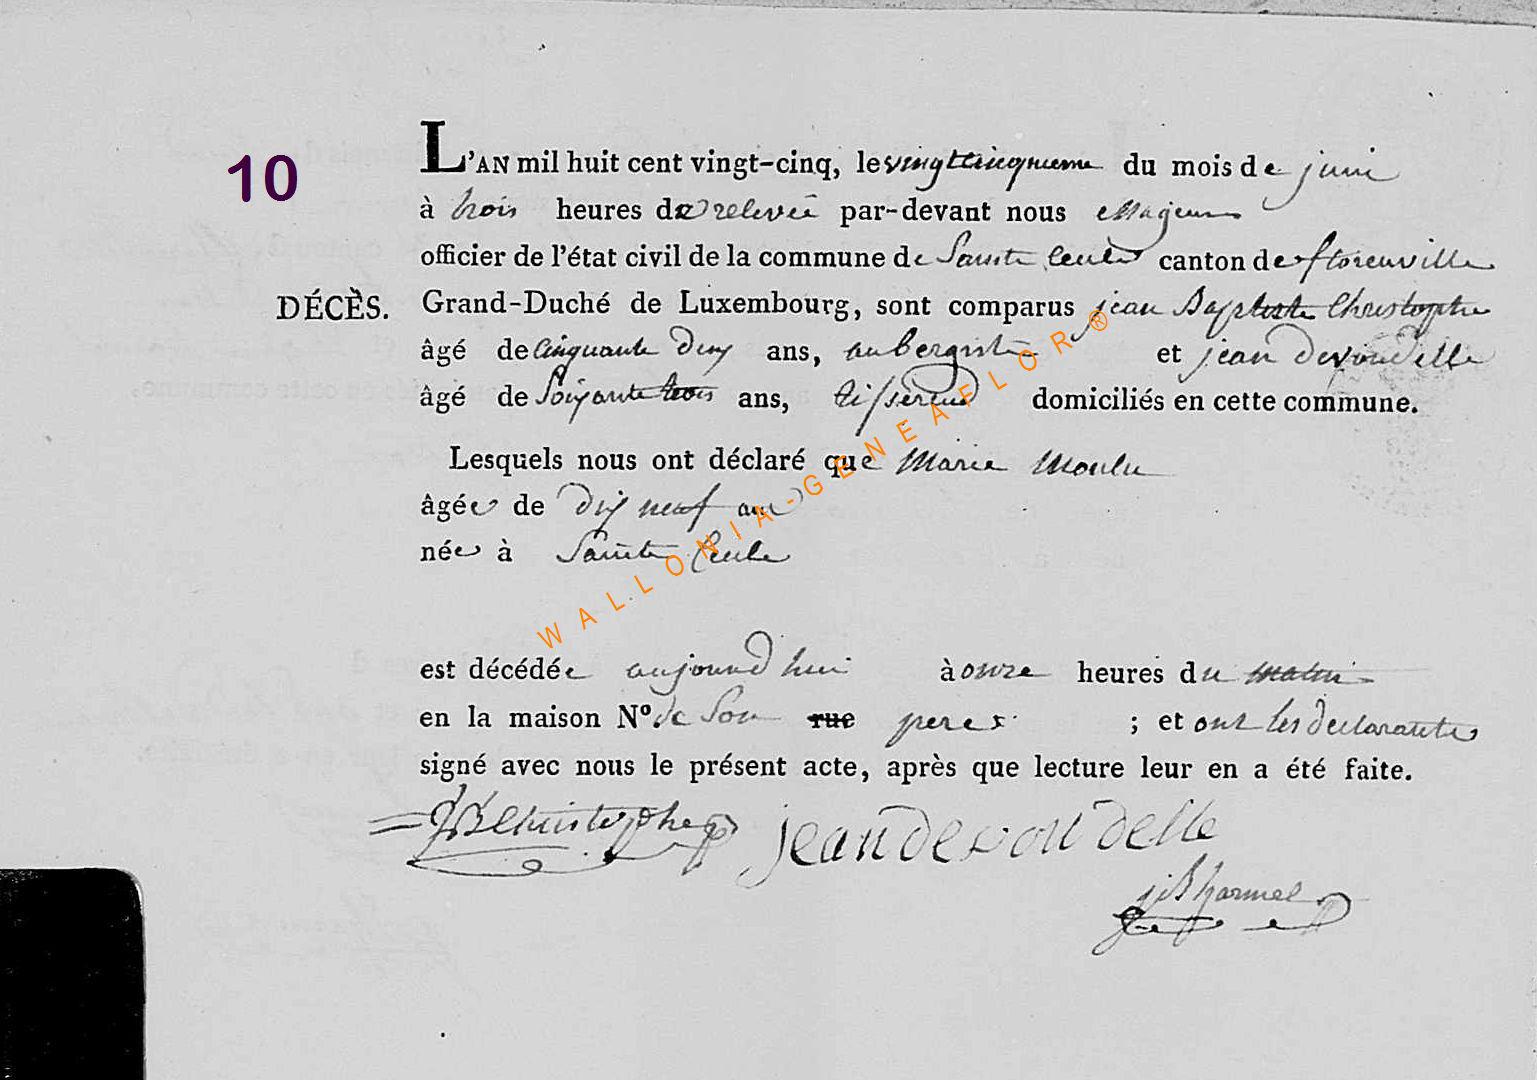 10
L'AN mil huit cent vingt-cinq, le vingtcinquieme du mois de juin
à trois heures de relevée par-devant nous Mayeur
officier de l'état civil de la commune de Sainte Cecile canton de florenville
DÉCÈS. Grand-Duché de Luxembourg, sont comparus jean Baptiste Christophe
âgé de cinquante deux ans, aubergiste et jean devoudelle
âgé de Soixante trois ans, tisserend domiciliés en cette commune.
Lesquels nous ont déclaré que Marie Moulu
âgée de dix neuf ans
née à Sainte Cecile
est décédée aujourd hui à onze heures du matin
en la maison N° de Son rue pere ; et ont les declarants
signé avec nous le présent acte, après que lecture leur en a été faite.
JB Christophe jean devoudelle
WALLONIA-GENEAFLOR®